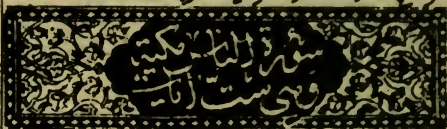 سورة الناس مكية
وهي ست آيات